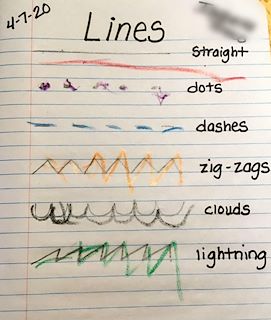 4-7-20
Lines
straight
dots
dashes
zig-zags
clouds
lightning